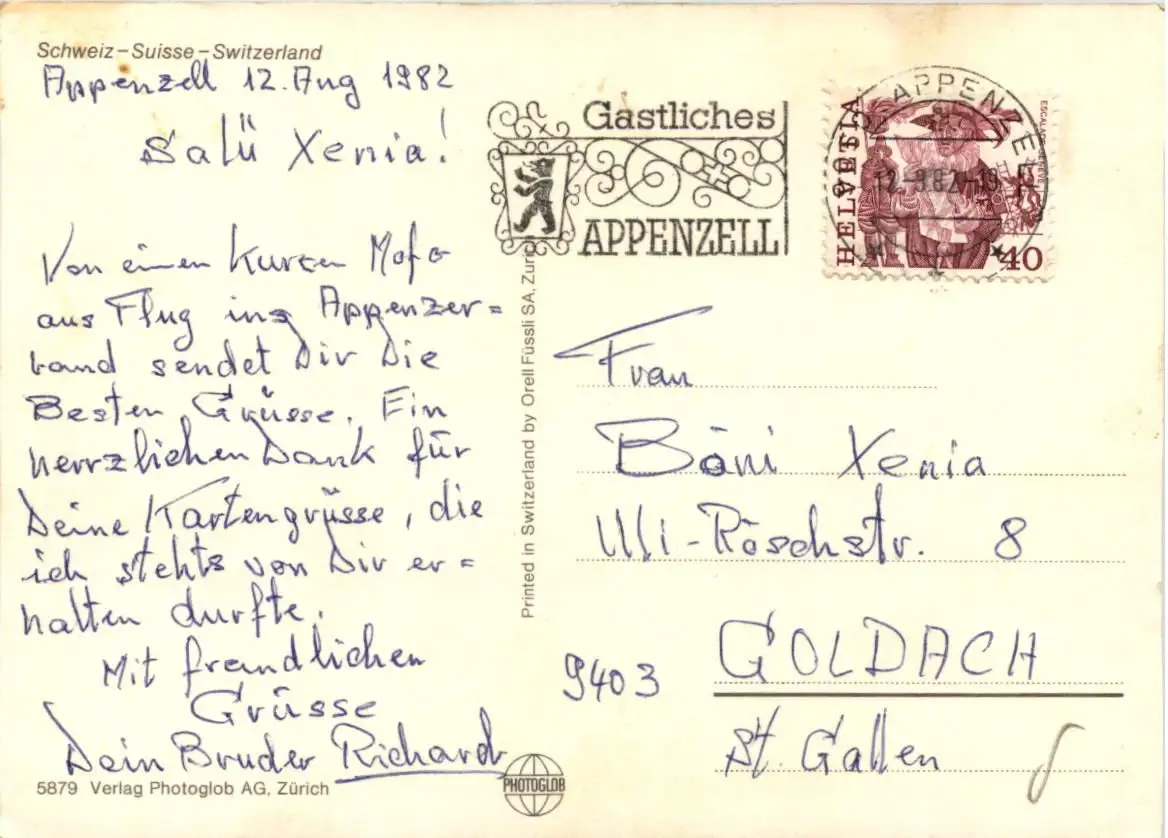 Schweiz – Suisse – Switzerland
Appenzell 12. Aug 1982
Salü Xenia!
Von einen kurzen Mofa
aus Flug ins Appenzer=
land sendet Dir Die
Besten Grüsse. Ein
herrzlichen Dank für
Deine Kartengrüsse, die
ich stehts von Dir er=
halten durfte.
Mit freundlichen
Grüsse
Dein Bruder Richard
5879 Verlag Photoglob AG, Zürich
PHOTOGLOB
Printed in Switzerland by Orell Füssli SA, Zürich
Gastliches
APPENZELL
APPENZELL
HELVETIA
ESCALADE GENÈVE
40
Frau
Böni Xenia
Ulli-Röschstr. 8
9403 GOLDACH
St. Gallen